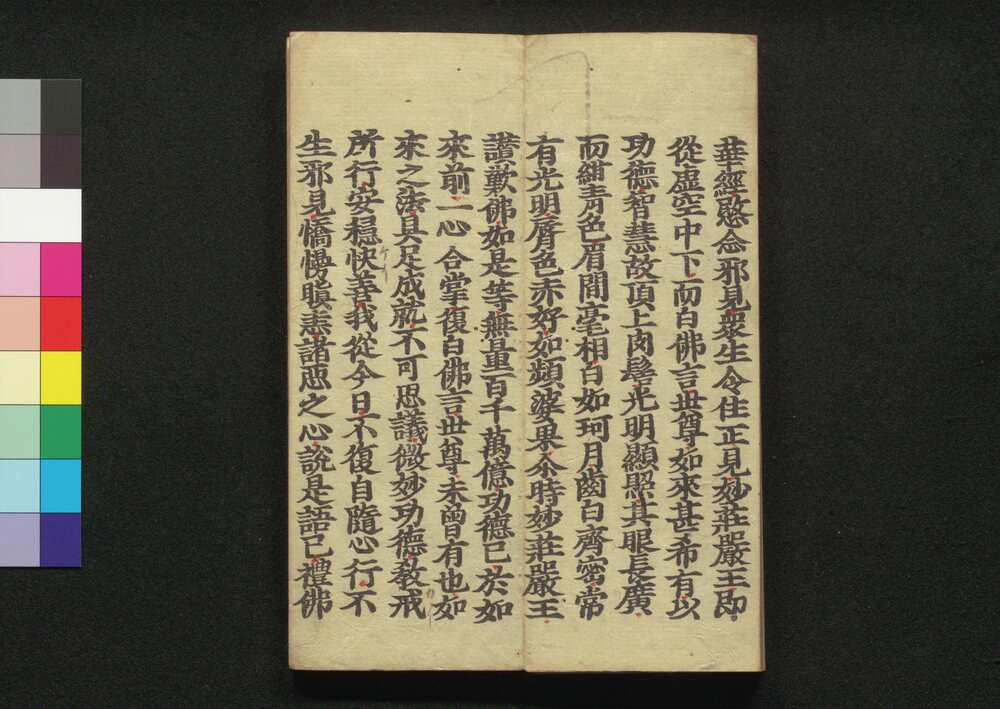 華經愍念邪見衆生令住正見妙莊嚴王即
從虛空中下而白佛言世尊如來甚希有以
功德智慧故頂上肉髻光明顯照其眼長廣
而紺青色眉間毫相白如珂月齒白齊密常
有光明脣色赤好如頻婆果尒時妙莊嚴王
讃歎佛如是等無量百千萬億功德已於如
來前一心合掌復白佛言世尊未曾有也如
來之法具足成就不可思議微妙功德教戒
所行安穩快善我從今日不復自隨心行不
生邪見憍慢瞋恚諸惡之心說是語已禮佛